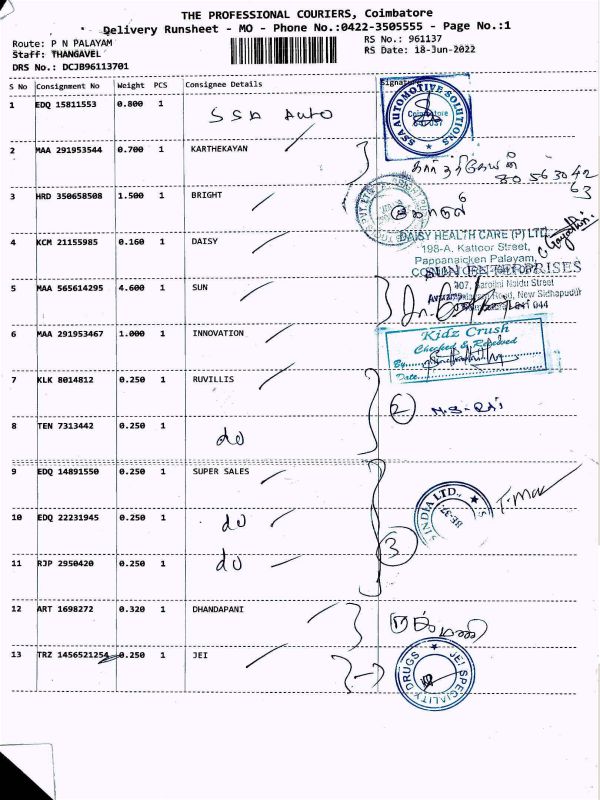 THE PROFESSIONAL COURIERS, Coimbatore
Delivery Runsheet - MO - Phone No.:0422-3505555 - Page No.:1
Route: P N PALAYAM
RS No.: 961137
Staff: THANGAVEL
RS Date: 18-Jun-2022
DRS No.: DCJB96113701
S No Consignment No Weight PCS Consignee Details Signature
1 EDQ 15811553 0.800 1 SSA Auto
SSA AUTOMOTIVE SOLUTIONS
Coimbatore
2 MAA 291953544 0.700 1 KARTHEKAYAN
கார்த்திகேயன்
80563042
63
3 HRD 350658508 1.500 1 BRIGHT
4 KCM 21155985 0.160 1 DAISY
DAISY HEALTH CARE (P) LTD.
198-A, Kattoor Street,
Pappanaicken Palayam,
5 MAA 565614295 4.600 1 SUN
SUN ENTERPRISES
307, Sarojini Naidu Street
Road, New Sidhapudur
044
6 MAA 291953467 1.000 1 INNOVATION
Kidz Crush
Checked & Received
By
Date
7 KLK 8014812 0.250 1 RUVILLIS
2
8 TEN 7313442 0.250 1 do
9 EDQ 14891550 0.250 1 SUPER SALES
INDIA LTD.
10 EDQ 22231945 0.250 1 do
3
11 RJP 2950420 0.250 1 do
12 ART 1698272 0.320 1 DHANDAPANI
13 TRZ 1456521254 0.250 1 JEI
JEI SPECIALITY DRUGS